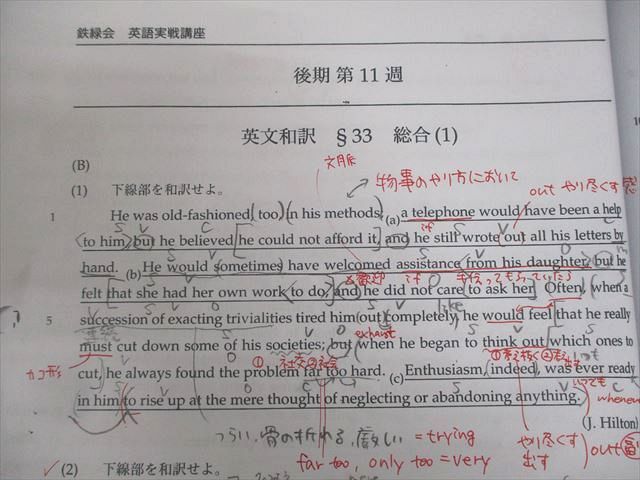 鉄緑会 英語実戦講座
後期 第 11 週
英文和訳 § 33 総合 (1)
(B)
(1) 下線部を和訳せよ。
文脈
物事のやり方において
out やり尽くす
1 He was old-fashioned, too, in his methods; (a) a telephone would have been a help
S V C if S V C
to him, but he believed he could not afford it, and he still wrote out all his letters by
hand. (b) He would sometimes have welcomed assistance from his daughter, but he
歓迎 if 手伝ってもらっていたら
felt that she had her own work to do, and he did not care to ask her. Often, when a
like
5 succession of exacting trivialities tired him out completely, he would feel that he really
exhaust
must cut down some of his societies; but when he began to think out which ones to
カコ形 ① 社交の社会 ① 考え抜く
cut, he always found the problem far too hard. (c) Enthusiasm, indeed, was ever ready
いつでも
in him to rise up at the mere thought of neglecting or abandoning anything.
whenever
(J. Hilton)
つらい、骨の折れる、厳しい = trying
やり尽くす
出す
out
far too, only too = very
(2) 下線部を和訳せよ。